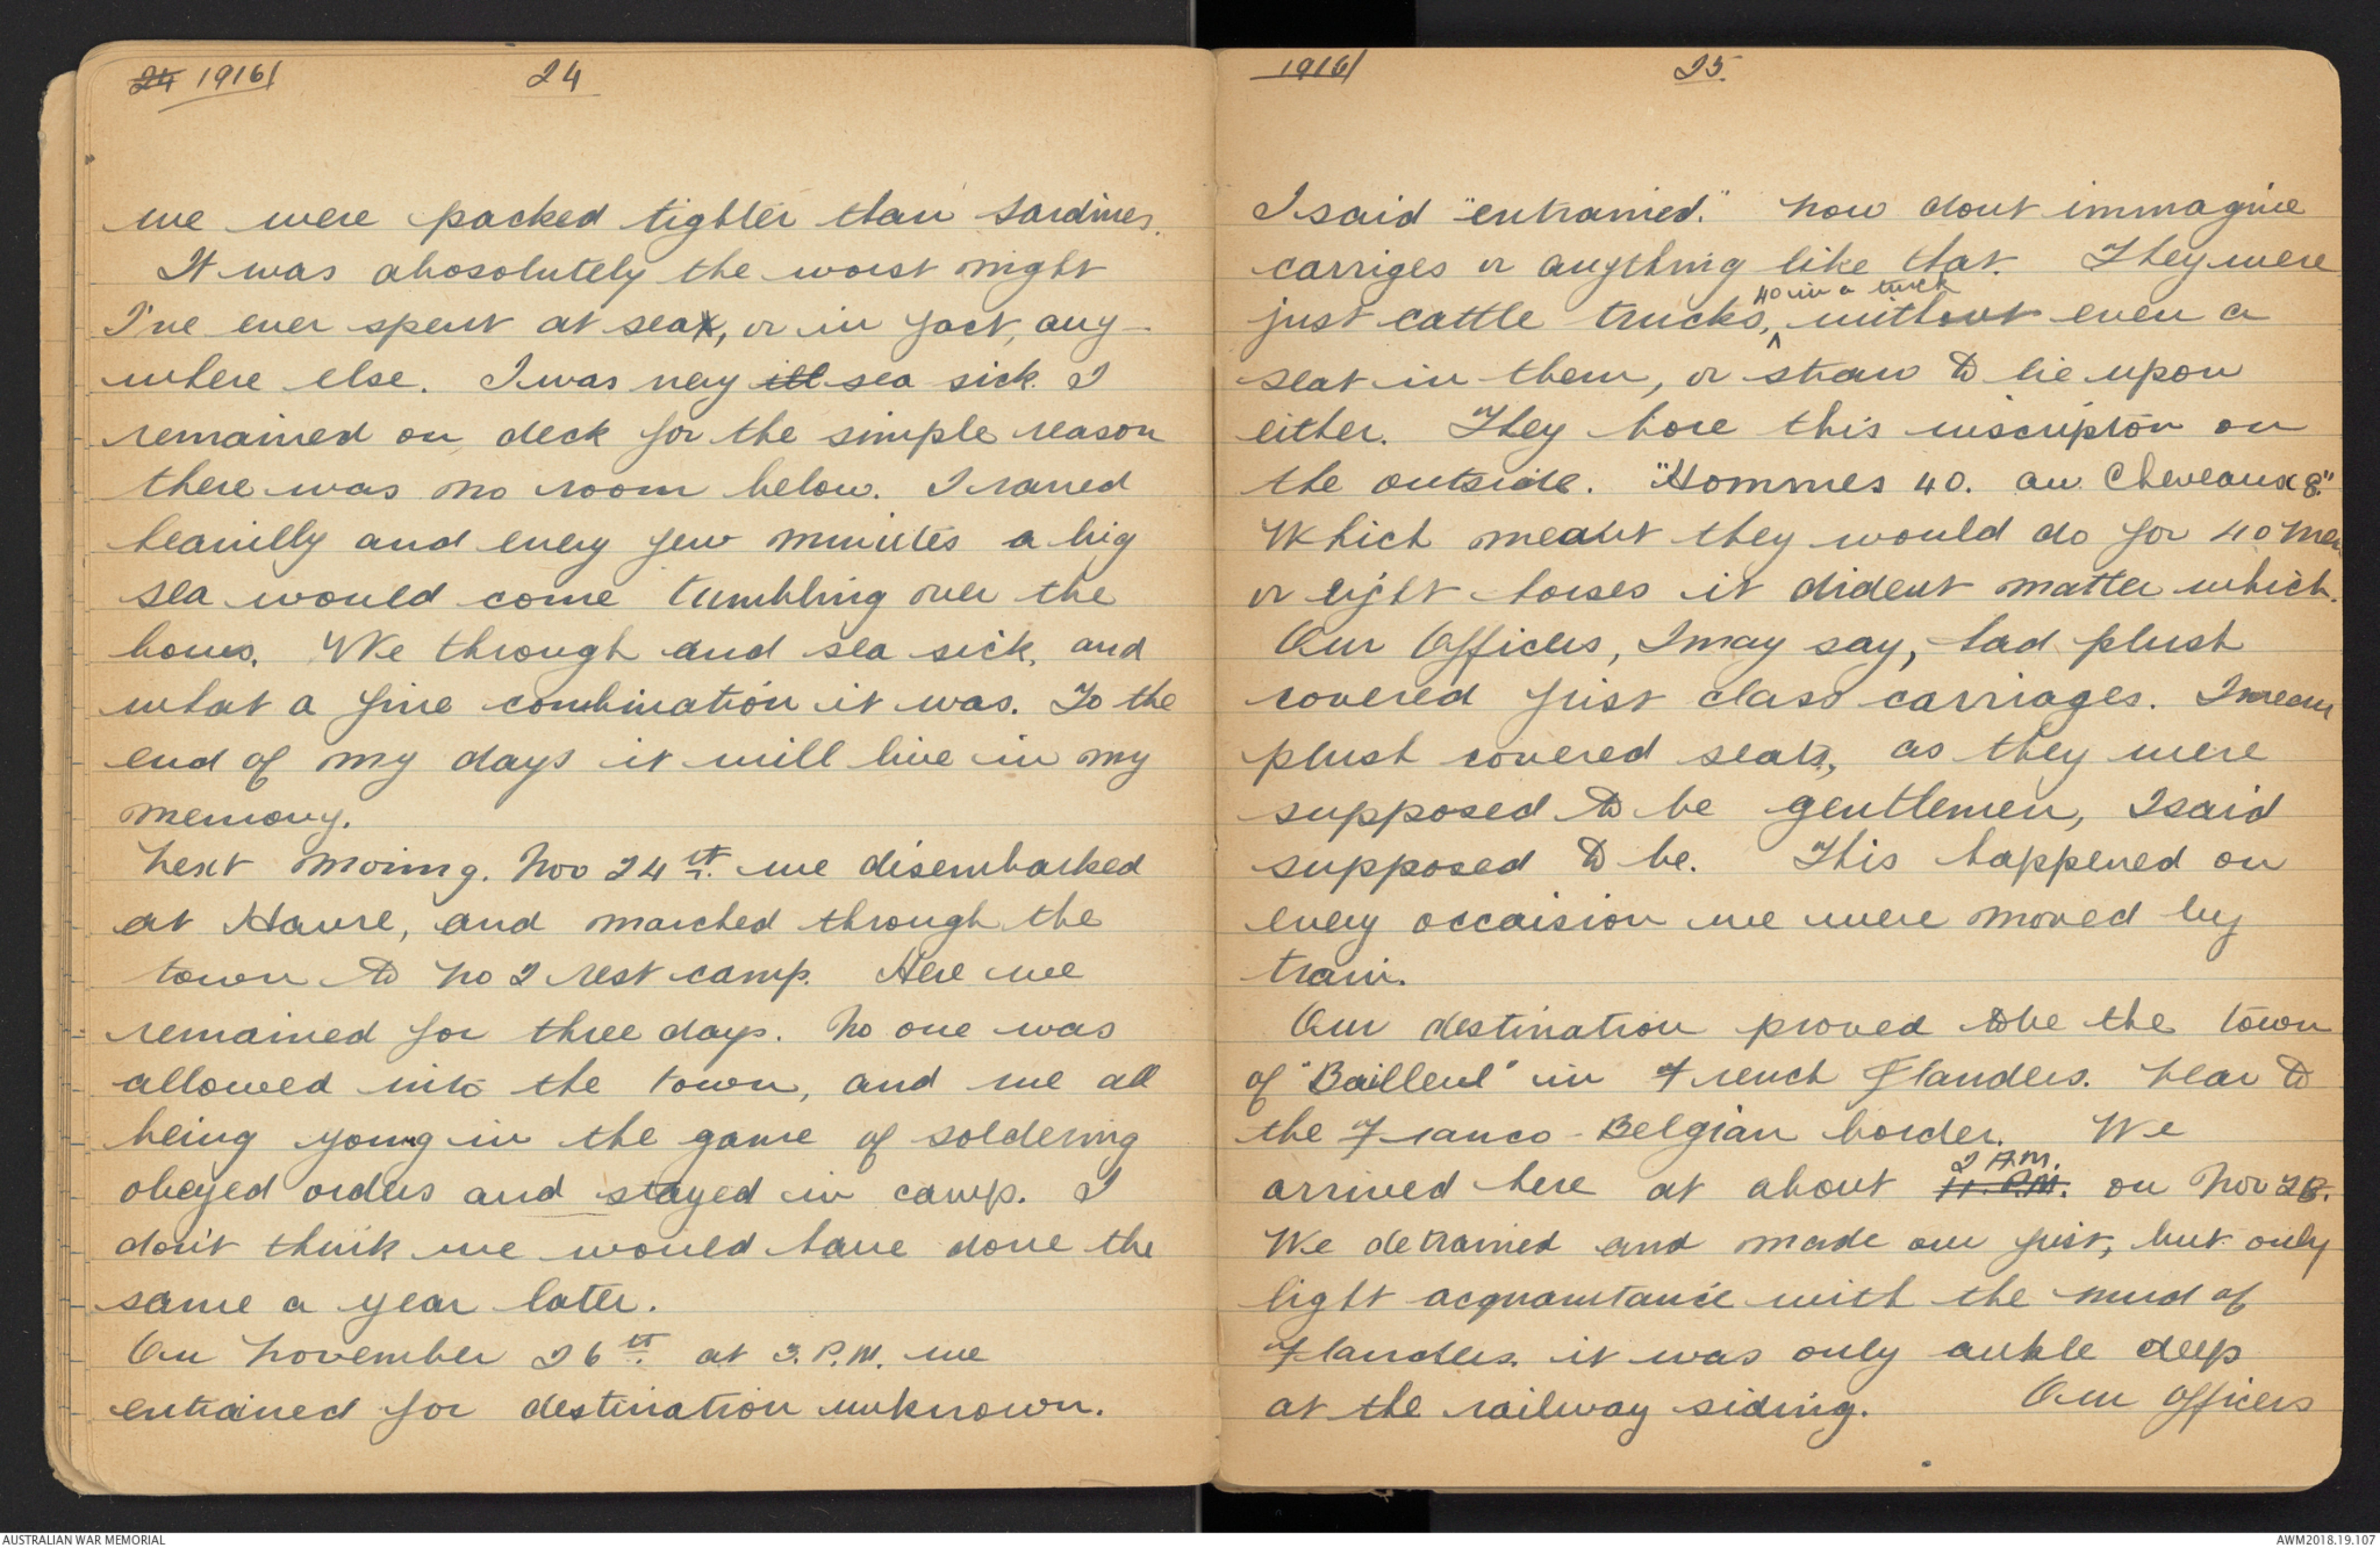 24 1916/ 24
we were packed tighter than sardines.
It was abosolutely the worst night
I've ever spent at sea, or in fact, any-
where else. I was very ill sea sick. I
remained on deck for the simple reason
there was no room below. I rained
heavilly and every few minutes a big
sea would come tumbling over the
bows. We through and sea sick, and
what a fine combination it was. To the
end of my days it will live in my
memory.
Next morning. Nov 24th. we disembarked
at Havre, and marched through the
town to No 2 rest camp. Here we
remained for three days. No one was
allowed into the town, and we all
being young in the game of soldering
obeyed orders and stayed in camp. I
don't think we would have done the
same a year later.
On November 26th. at 3. P.M. we
entrained for destination unknown.
1916/ 25.
I said "entrained." Now dont immagine
carriges or anything like that. They were
40 in a truck
just cattle trucks, without even a
seat in them, or straw to lie upon
either. They bore this inscription on
the outside. "Hommes 40. au Cheveaux 8."
Which meant they would do for 40 men
or eight horses it dident matter which.
Our Officers, I may say, had plush
covered first class carriages. I mean
plush covered seats, as they were
supposed to be gentlemen, I said
supposed to be. This happened on
every occaision we were moved by
train.
Our destination proved to be the town
of "Bailleul" in French Flanders. Near to
the Franco-Belgian border. We
2 A.M.
arrived here at about 11. P.M. on Nov 28.
We detrained and made our first, but only
light acquaintance with the mud of
Flanders. it was only ankle deep
at the railway siding. Our officers
AUSTRALIAN WAR MEMORIAL
AWM2018.19.107